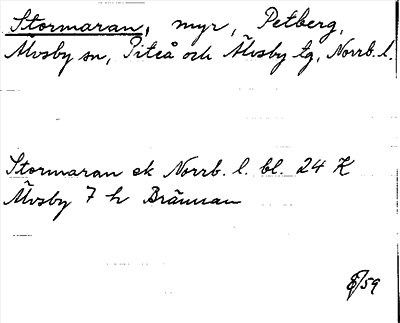 Stormaran, myr, Petberg,
Älvsby sn, Piteå och Älvsby tg, Norrb. l.
Stormaran ek Norrb. l. bl. 24 K
Älvsby 7 h Brännan
/59